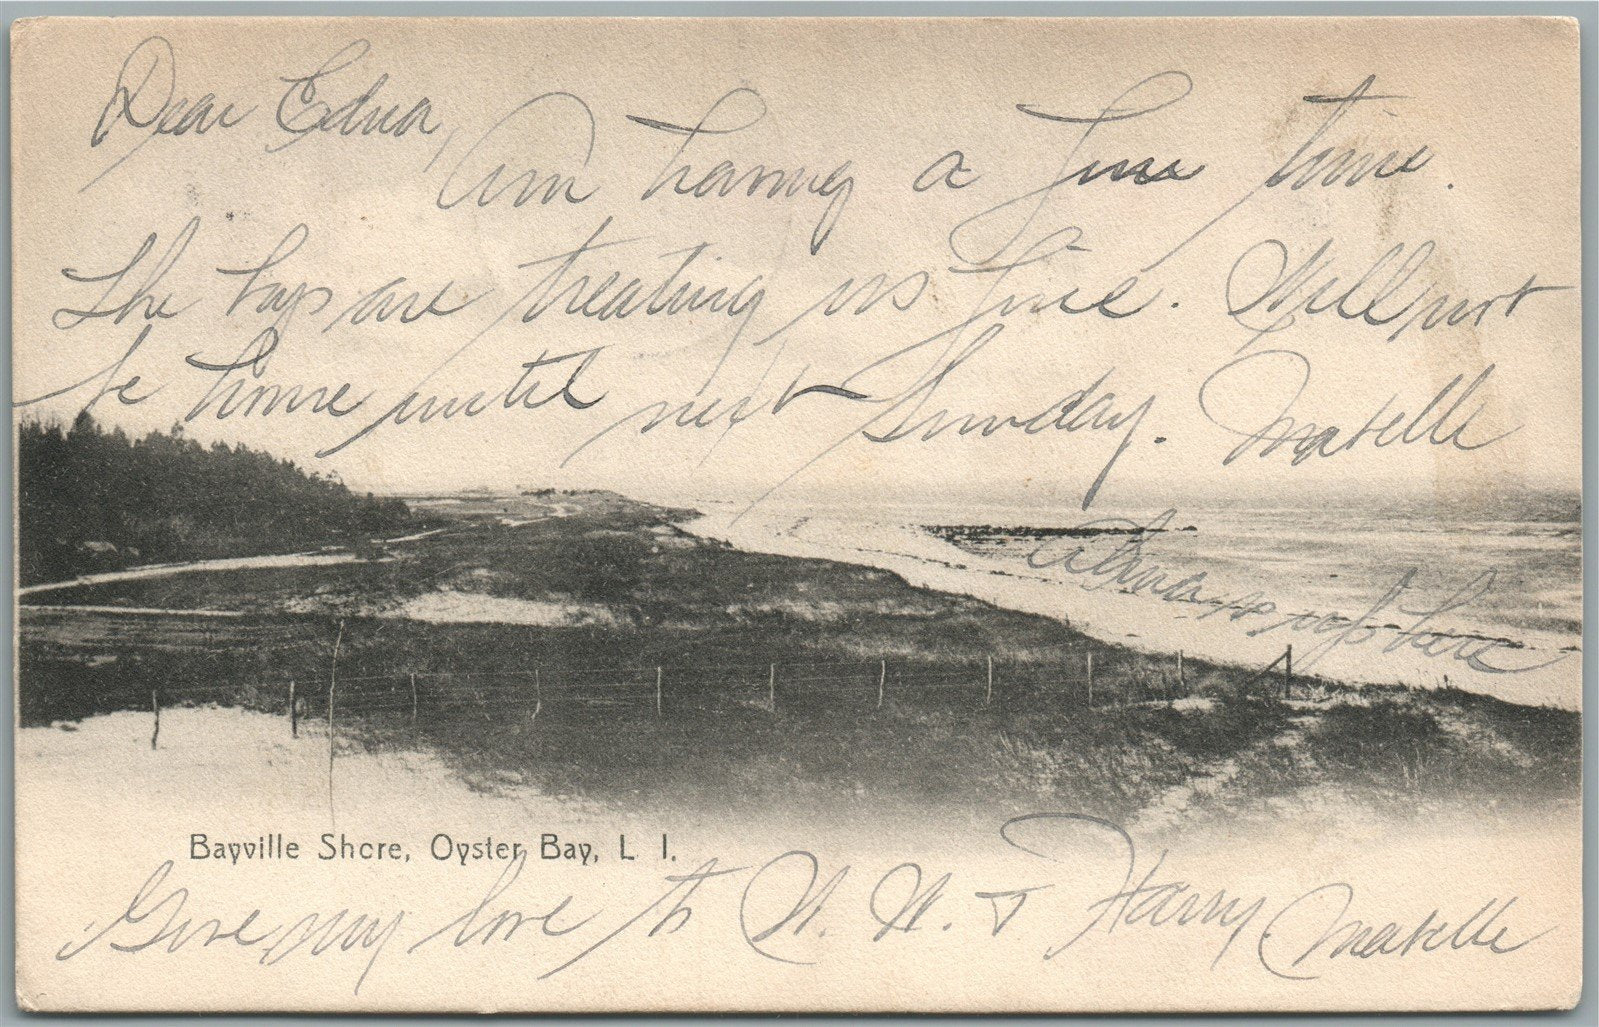 Dear Edna,
Am having a fine time.
The boys are treating us fine. Will not
be home until next Sunday. Mabelle
Edna is up here
Bayville Shore, Oyster Bay, L I.
Give my love to W. W. & Harry. Mabelle